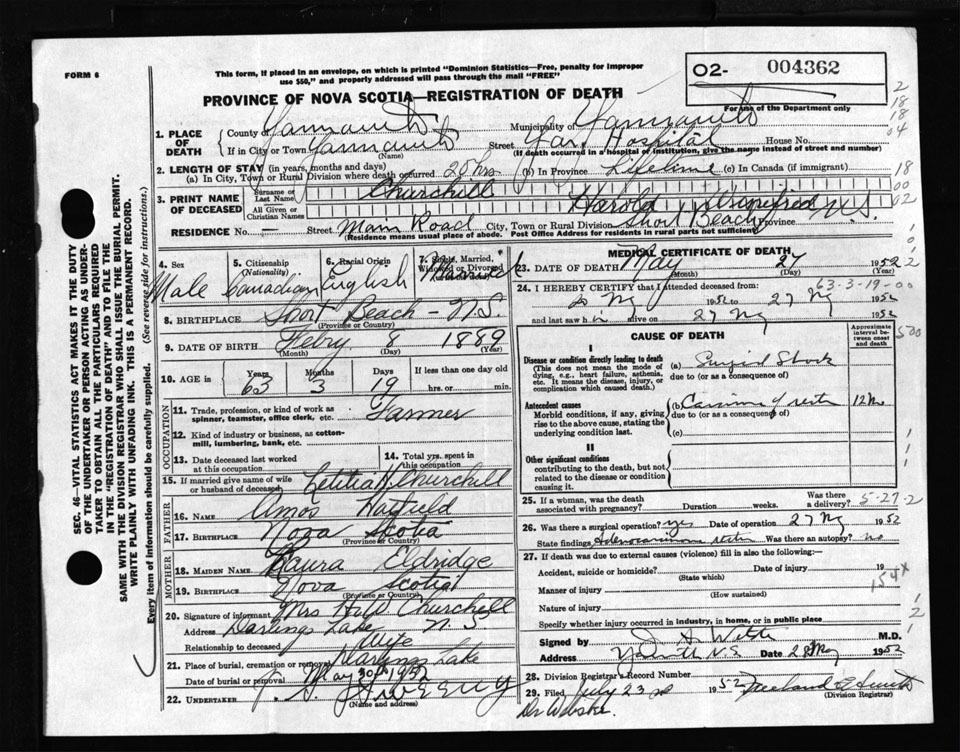 FORM 6
This form, if placed in an envelope, on which is printed "Dominion Statistics—Free, penalty for improper
use $50," and properly addressed will pass through the mail "FREE"
PROVINCE OF NOVA SCOTIA—REGISTRATION OF DEATH
O2- 004362
For use of the Department only
1. PLACE OF DEATH County of Yarmouth Municipality of Yarmouth
If in City or Town Yarmouth (Name) Street Yar. Hospital House No.
(If death occurred in a hospital or institution, give the name instead of street and number)
2. LENGTH OF STAY (in years, months and days)
(a) In City, Town or Rural Division where death occurred 20 hrs (b) In Province Lifetime (c) In Canada (if immigrant)
3. PRINT NAME OF DECEASED Surname or Last Name Churchill
All Given or Christian Names Harold Winifred
RESIDENCE No. — Street Main Road City, Town or Rural Division Short Beach Province N.S.
(Residence means usual place of abode. Post Office Address for residents in rural parts not sufficient)
4. Sex Male
5. Citizenship (Nationality) Canadian
6. Racial Origin English
7. Single, Married, Widowed or Divorced Married
8. BIRTHPLACE Short Beach - N.S.
(Province or Country)
9. DATE OF BIRTH Febry. 8 1889
(Month) (Day) (Year)
10. AGE in Years 63 Months 3 Days 19 If less than one day old hrs. or min.
OCCUPATION
11. Trade, profession, or kind of work as spinner, teamster, office clerk, etc. Farmer
12. Kind of industry or business, as cotton-mill, lumbering, bank, etc.
13. Date deceased last worked at this occupation
14. Total yrs. spent in this occupation
15. If married give name of wife or husband of deceased Letitia H Churchill
FATHER
16. NAME Amos Hatfield
17. BIRTHPLACE Nova Scotia
(Province or Country)
MOTHER
18. MAIDEN NAME Laura Eldridge
19. BIRTHPLACE Nova Scotia
(Province or Country)
20. Signature of informant Mrs Churchill
Address Darlings Lake N.S
Relationship to deceased Wife
21. Place of burial, cremation or removal Darlings Lake
Date of burial or removal May 30, 1952
22. UNDERTAKER Sweeny
(Name and address)
MEDICAL CERTIFICATE OF DEATH
23. DATE OF DEATH May 27 1952
(Month) (Day) (Year)
63-3-19-00
24. I HEREBY CERTIFY that I attended deceased from:
My 1952 to 27 My 1952
and last saw him alive on 27 My 1952
CAUSE OF DEATH
Approximate interval between onset and death
I
Disease or condition directly leading to death
(This does not mean the mode of dying, e.g., heart failure, asthenia, etc. It means the disease, injury, or complication which caused death.)
(a) Surgical Shock
due to (or as a consequence of)
Antecedent causes
Morbid conditions, if any, giving rise to the above cause, stating the underlying condition last.
(b) Carcinoma of rectum 12 Mo
due to (or as a consequence of)
(c)
II
Other significant conditions
contributing to the death, but not related to the disease or condition causing it.
25. If a woman, was the death associated with pregnancy? Duration weeks. Was there a delivery?
5-27-2
26. Was there a surgical operation? yes Date of operation 27 My 1952
State findings Adenocarcinoma rectum Was there an autopsy? no
27. If death was due to external causes (violence) fill in also the following:—
Accident, suicide or homicide? Date of injury 19
(State which)
154 X
Manner of injury
(How sustained)
Nature of injury
Specify whether injury occurred in industry, in home, or in public place
Signed by M.D.
Address Yarmouth N.S Date 28 My 1952
28. Division Registrar's Record Number
29. Filed July 23rd 1952
(Division Registrar)
Dr Webster.
SEC. 46—VITAL STATISTICS ACT MAKES IT THE DUTY
OF THE UNDERTAKER OR PERSON ACTING AS UNDER-
TAKER TO OBTAIN ALL THE PARTICULARS REQUIRED
IN THE "REGISTRATION OF DEATH" AND TO FILE THE
SAME WITH THE DIVISION REGISTRAR WHO SHALL ISSUE THE BURIAL PERMIT.
WRITE PLAINLY WITH UNFADING INK. THIS IS A PERMANENT RECORD.
Every item of Information should be carefully supplied. (See reverse side for instructions.)